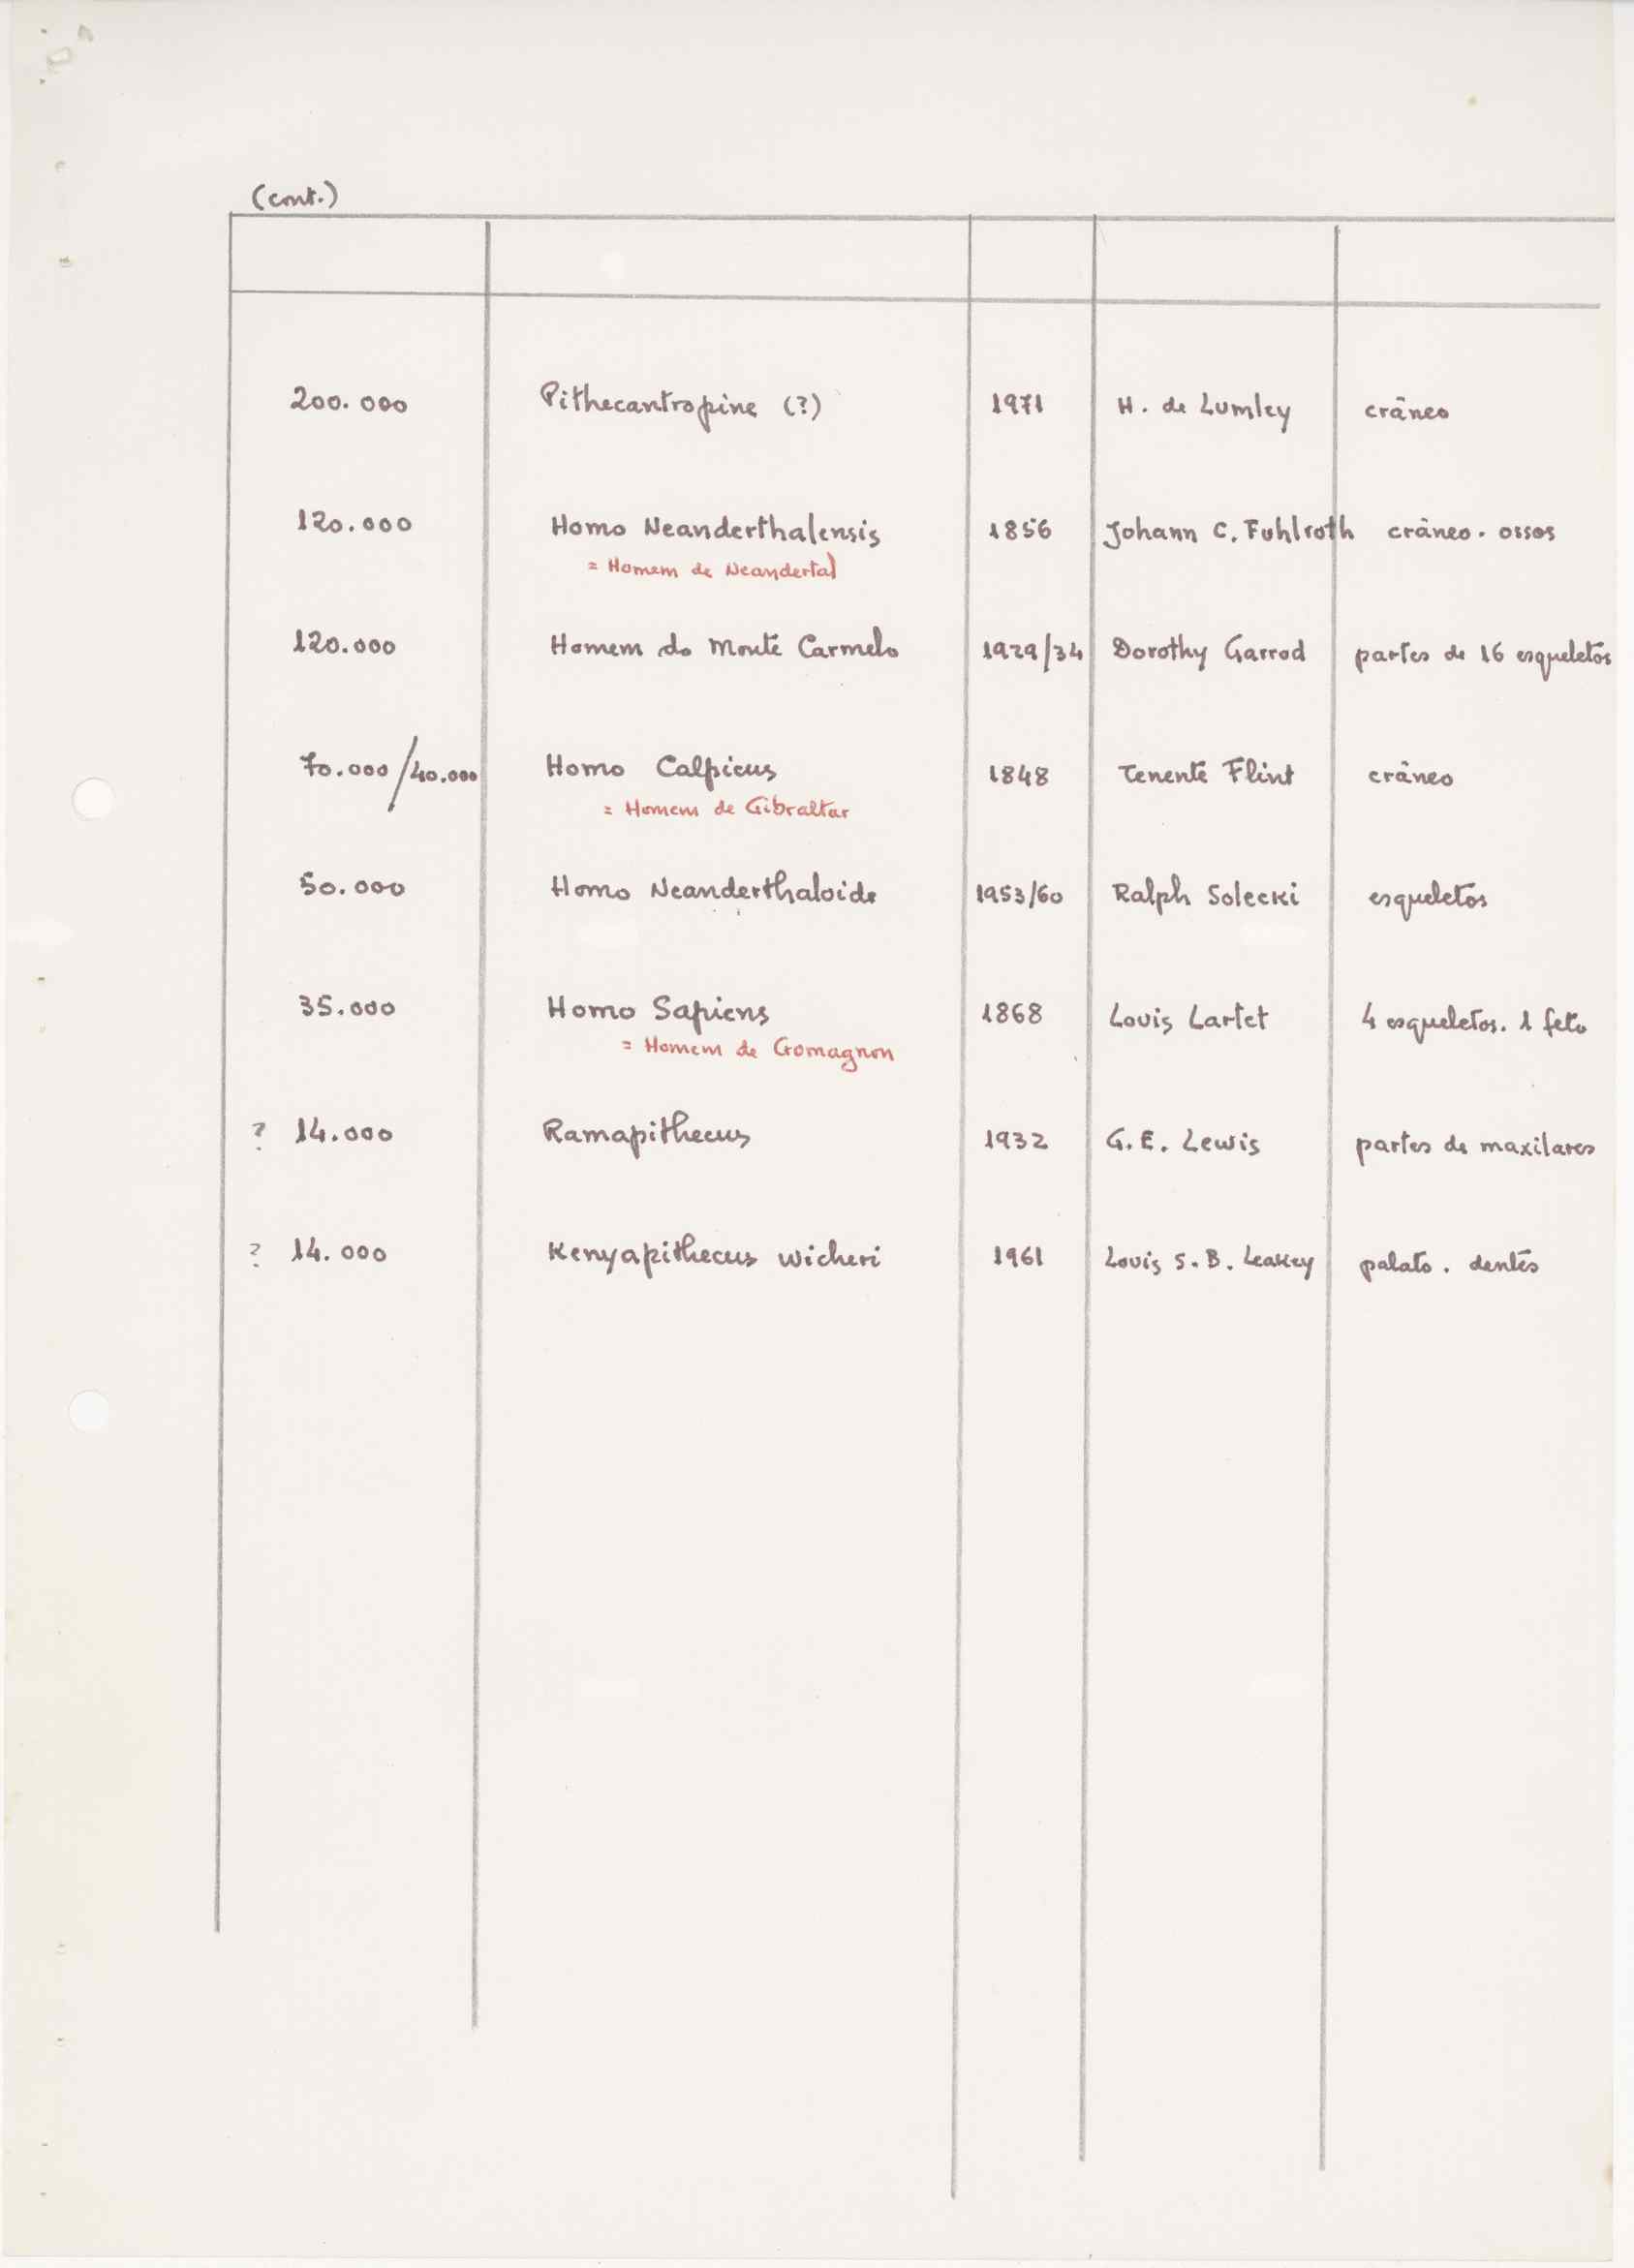 (cont.)
200.000 Pithecantropine (?) 1971 H. de Lumley crâneo
120.000 Homo Neanderthalensis 1856 Johann C. Fuhlroth crâneo. ossos
= Homem de Neandertal
120.000 Homem do Monte Carmelo 1929/34 Dorothy Garrod partes de 16 esqueletos
70.000/40.000 Homo Calpicus 1848 Tenente Flint crâneo
= Homem de Gibraltar
50.000 Homo Neanderthaloide 1953/60 Ralph Solecki esqueletos
35.000 Homo Sapiens 1868 Louis Lartet 4 esqueletos. 1 feto
= Homem de Cromagnon
? 14.000 Ramapithecus 1932 G. E. Lewis partes de maxilares
? 14.000 Kenyapithecus wicheri 1961 Louis S. B. Leakey palato. dentes